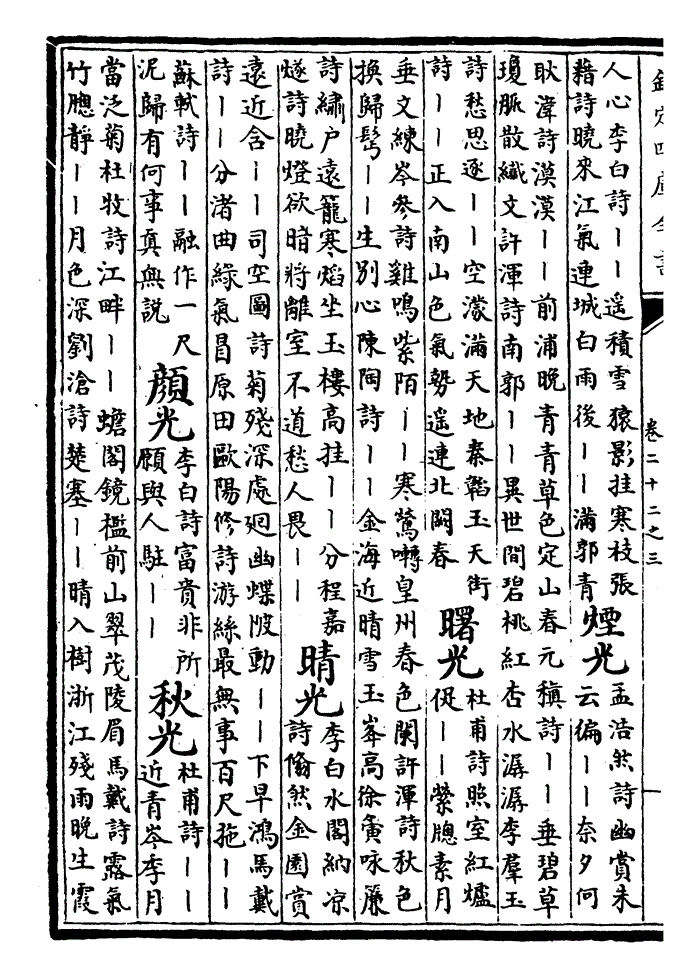 欽定四庫全書
卷二十二之三
人心李白詩——遥積雪猿影挂寒枝張
籍詩曉來江氣連城白雨後——滿郭青
煙光
孟浩然詩幽賞未
云徧——奈夕何
耿湋詩漠漠——前浦晚青青草色定山春元稹詩——垂碧草
瓊脈散纖文許渾詩南郭——異世間碧桃紅杏水潺潺李羣玉
詩愁思逐——空濛滿天地秦韜玉天街
詩——正入南山色氣勢遥連北闕春
曙光
杜甫詩照室紅爐
促——縈牕素月
垂文練岑參詩雞鳴紫陌——寒鶯囀皇州春色闌許渾詩秋色
換歸髩——生別心陳陶詩——金海近晴雪玉峯高徐夤咏簾
詩繡户遠籠寒焰坐玉樓高挂——分程嘉
燧詩曉燈欲暗將離室不道愁人畏——
晴光
李白水閣納凉
詩翛然金園賞
遠近含——司空圖詩菊殘深處廻幽蝶陂動——下早鴻馬戴
詩——分渚曲緑氣昌原田歐陽修詩游絲最無事百尺拖——
蘇軾詩——融作一尺
泥歸有何事真無説
顔光
李白詩富貴非所
願與人駐——
秋光
杜甫詩——
近青岑季月
當泛菊杜牧詩江畔——蟾閣鏡檻前山翠茂陵眉馬戴詩露氣
竹牕靜——月色深劉滄詩楚塞——晴入樹浙江殘雨晚生霞